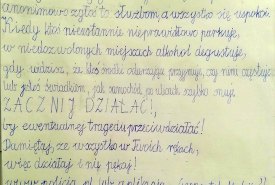 anonimowo zgłoś to służbom, a wszystko się uspokoi.
Kiedy ktoś nieustannie nieprawidłowo parkuje,
w niedozwolonych miejscach alkohol degustuje,
gdy widzisz, że ktoś środki odurzające przyjmuje, czy nimi częstuje,
lub jesteś świadkiem, jak samochód po ulicach szybko mknie,
ZACZNIJ DZIAŁAĆ!,
by ewentualnej tragedii przeciwdziałać!
Pamiętaj, że wszystko w Twoich rękach,
więc działaj i nie pękaj!